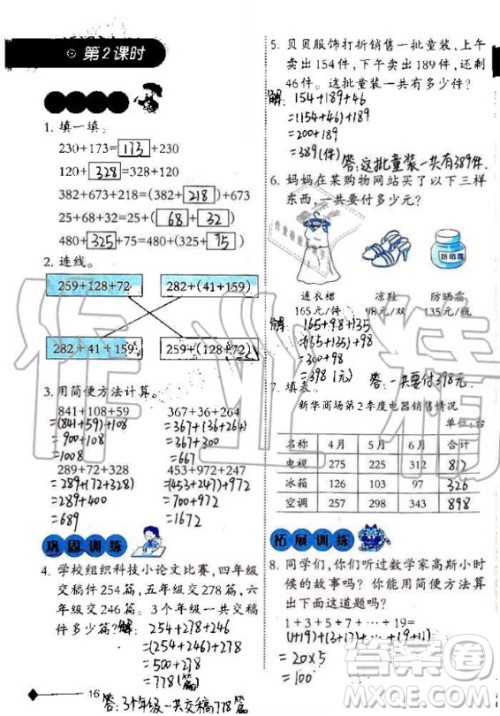 第2课时
1. 填一填。
230+173=173+230
120+328=328+120
382+673+218=(382+218)+673
25+68+32=25+(68+32)
480+325+75=480+(325+75)
2. 连线。
259+128+72
282+(41+159)
282+41+159
259+(128+72)
3. 用简便方法计算。
841+108+59
=(841+59)+108
=900+108
=1008
367+36+264
=367+(36+264)
=367+300
=667
289+72+328
=289+(72+328)
=289+400
=689
453+972+247
=(453+247)+972
=700+972
=1672
巩固训练
4. 学校组织科技小论文比赛，四年级
交稿件254篇，五年级交278篇，六
年级交246篇。3个年级一共交稿
件多少篇？解：254+278+246
=254+246+278
=500+278
=778(篇)
答：3个年级一共交稿778篇
16
5. 贝贝服饰打折销售一批童装，上午
卖出154件，下午卖出189件，还剩
46件。这批童装一共有多少件？
解：154+189+46
=(154+46)+189
=200+189
=389(件)
答：这批童装一共有389件.
6. 妈妈在某购物网站买了以下三样
东西，一共要付多少元？
防晒霜
连衣裙 凉鞋 防晒霜
165元/件 98元/双 135元/瓶
解：165+98+135
=(165+135)+98
=300+98
=398(元)
答：一共要付398元.
7. 填表。
新华商场第2季度电器销售情况
单位：台
名称 4月 5月 6月 合计
电视 275 225 312 812
冰箱 126 93 107 326
空调 257 298 343 898
拓展训练
8. 同学们，你们听过数学家高斯小时
候的故事吗？你能用简便方法算出
下面这道题吗？
1+3+5+7+…+19=
(1+19)+(3+17)+…
=20×5
=100
作业精
答案圈